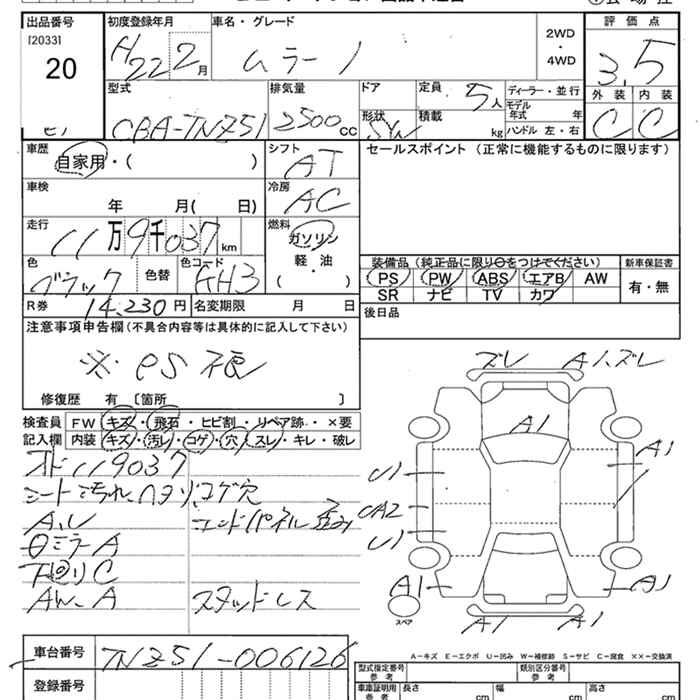 出品番号
[2033]
20
初度登録年月
H22 2月
車名・グレード
ムラーノ
2WD
・
4WD
評価点
3.5
外装 内装
C C
型式
CBA-TNZ51
排気量
2500cc
ドア
定員
5人
ディーラー・並行
モデル年式 年
形状
SW
積載
kg
ハンドル 左・右
車歴
自家用・( )
シフト
AT
セールスポイント(正常に機能するものに限ります)
車検
年 月( 日)
冷房
AC
走行
11万9千037km
燃料
ガソリン
軽・油
( )
色
ブラック
色替
色コード
KH3
装備品(純正品に限り○をつけてください)
新車保証書
PS PW ABS エアB AW
SR ナビ TV カワ
有・無
R券
14,230円
名変期限 月 日
後日品
注意事項申告欄(不具合内容等は具体的に記入して下さい)
※ PS 不良
修復歴 有 〔箇所 〕
検査員記入欄
FW キズ・飛石・ヒビ割・リペア跡・×要
内装 キズ・汚レ・コゲ・穴・スレ・キレ・破レ
オド119037
シート汚れ、ヘタリ、コゲ穴
エンドパネル歪み
ロミラーA
下回りC
AW、A
スタッドレス
ズレ
A1、ズレ
A1
A1
U1
UA2
U1
A1
A1
A1
A1
スペア
A-キズ E-エクボ U-凹み W-補修跡 S-サビ C-腐食 ××-交換済
車台番号
TNZ51-006126
登録番号
型式指定番号
参考
類別区分番号
参考
車庫証明用
参考
長さ
cm
幅
cm
高さ
cm